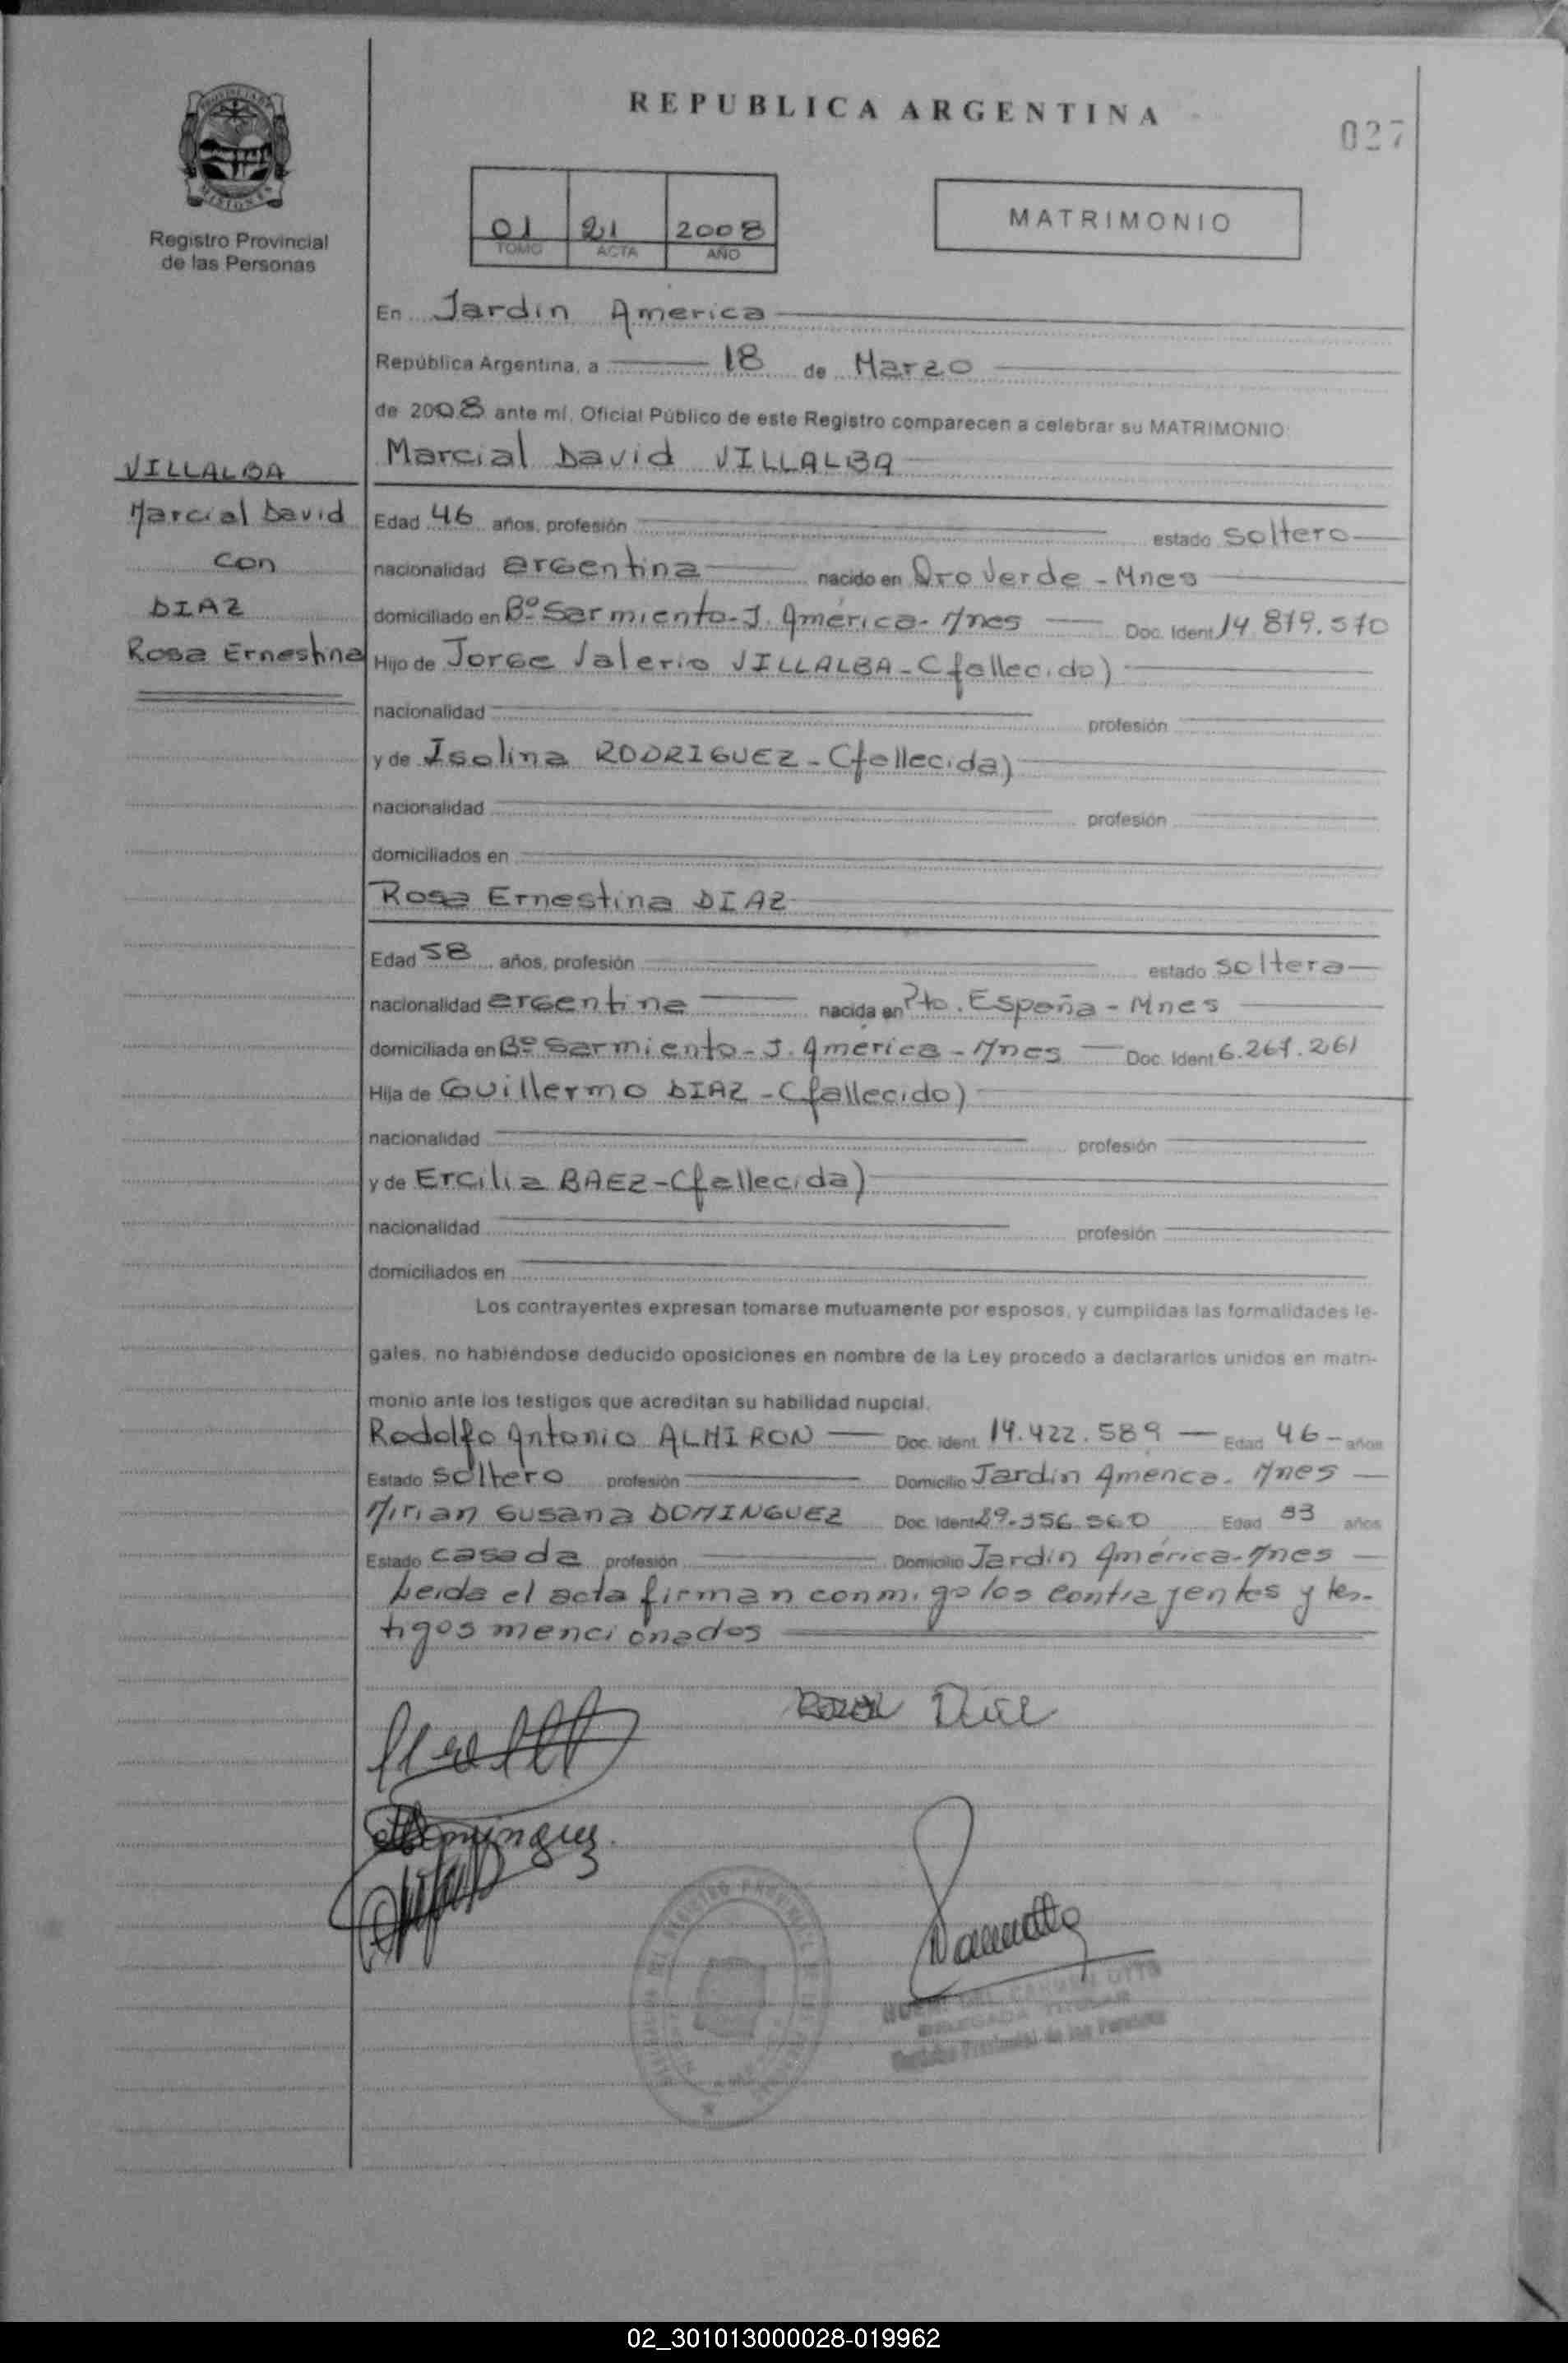 REPUBLICA ARGENTINA
027
Registro Provincial
de las Personas
01 21 2008
TOMO ACTA AÑO
MATRIMONIO
En Jardin America
República Argentina, a 18 de Marzo
de 2008 ante mí, Oficial Público de este Registro comparecen a celebrar su MATRIMONIO:
Marcial David VILLALBA
VILLALBA
Marcial David
con
DIAZ
Rosa Ernestina
Edad 46 años, profesión estado soltero
nacionalidad argentina nacido en Oro Verde - Mnes
domiciliado en Bº Sarmiento - J. América - Mnes Doc. Ident 14.819.570
Hijo de Jorge Valerio VILLALBA - (fallecido)
nacionalidad profesión
y de Isolina RODRIGUEZ - (fallecida)
nacionalidad profesión
domiciliados en
Rosa Ernestina DIAZ
Edad 58 años, profesión estado soltera
nacionalidad argentina nacida en Pto. España - Mnes
domiciliada en Bº Sarmiento - J. America - Mnes Doc. Ident 6.261.261
Hija de Guillermo DIAZ - (fallecido)
nacionalidad profesión
y de Ercilia BAEZ - (fallecida)
nacionalidad profesión
domiciliados en
Los contrayentes expresan tomarse mutuamente por esposos, y cumplidas las formalidades le-
gales, no habiéndose deducido oposiciones en nombre de la Ley procedo a declararlos unidos en matri-
monio ante los testigos que acreditan su habilidad nupcial.
Rodolfo Antonio ALMIRON Doc. Ident. 14.422.589 Edad 46 años
Estado soltero profesión Domicilio Jardin America - Mnes
Mirian Susana DOMINGUEZ Doc. Ident 29.356.560 Edad 33 años
Estado casada profesión Domicilio Jardin América - Mnes
Leida el acta firman conmigo los contrayentes y tes-
tigos mencionados
Rosa Diaz
Dominguez
DEL CARMEN OTTO
DELEGADA TITULAR
Registro Provincial de las Personas
02_301013000028-019962